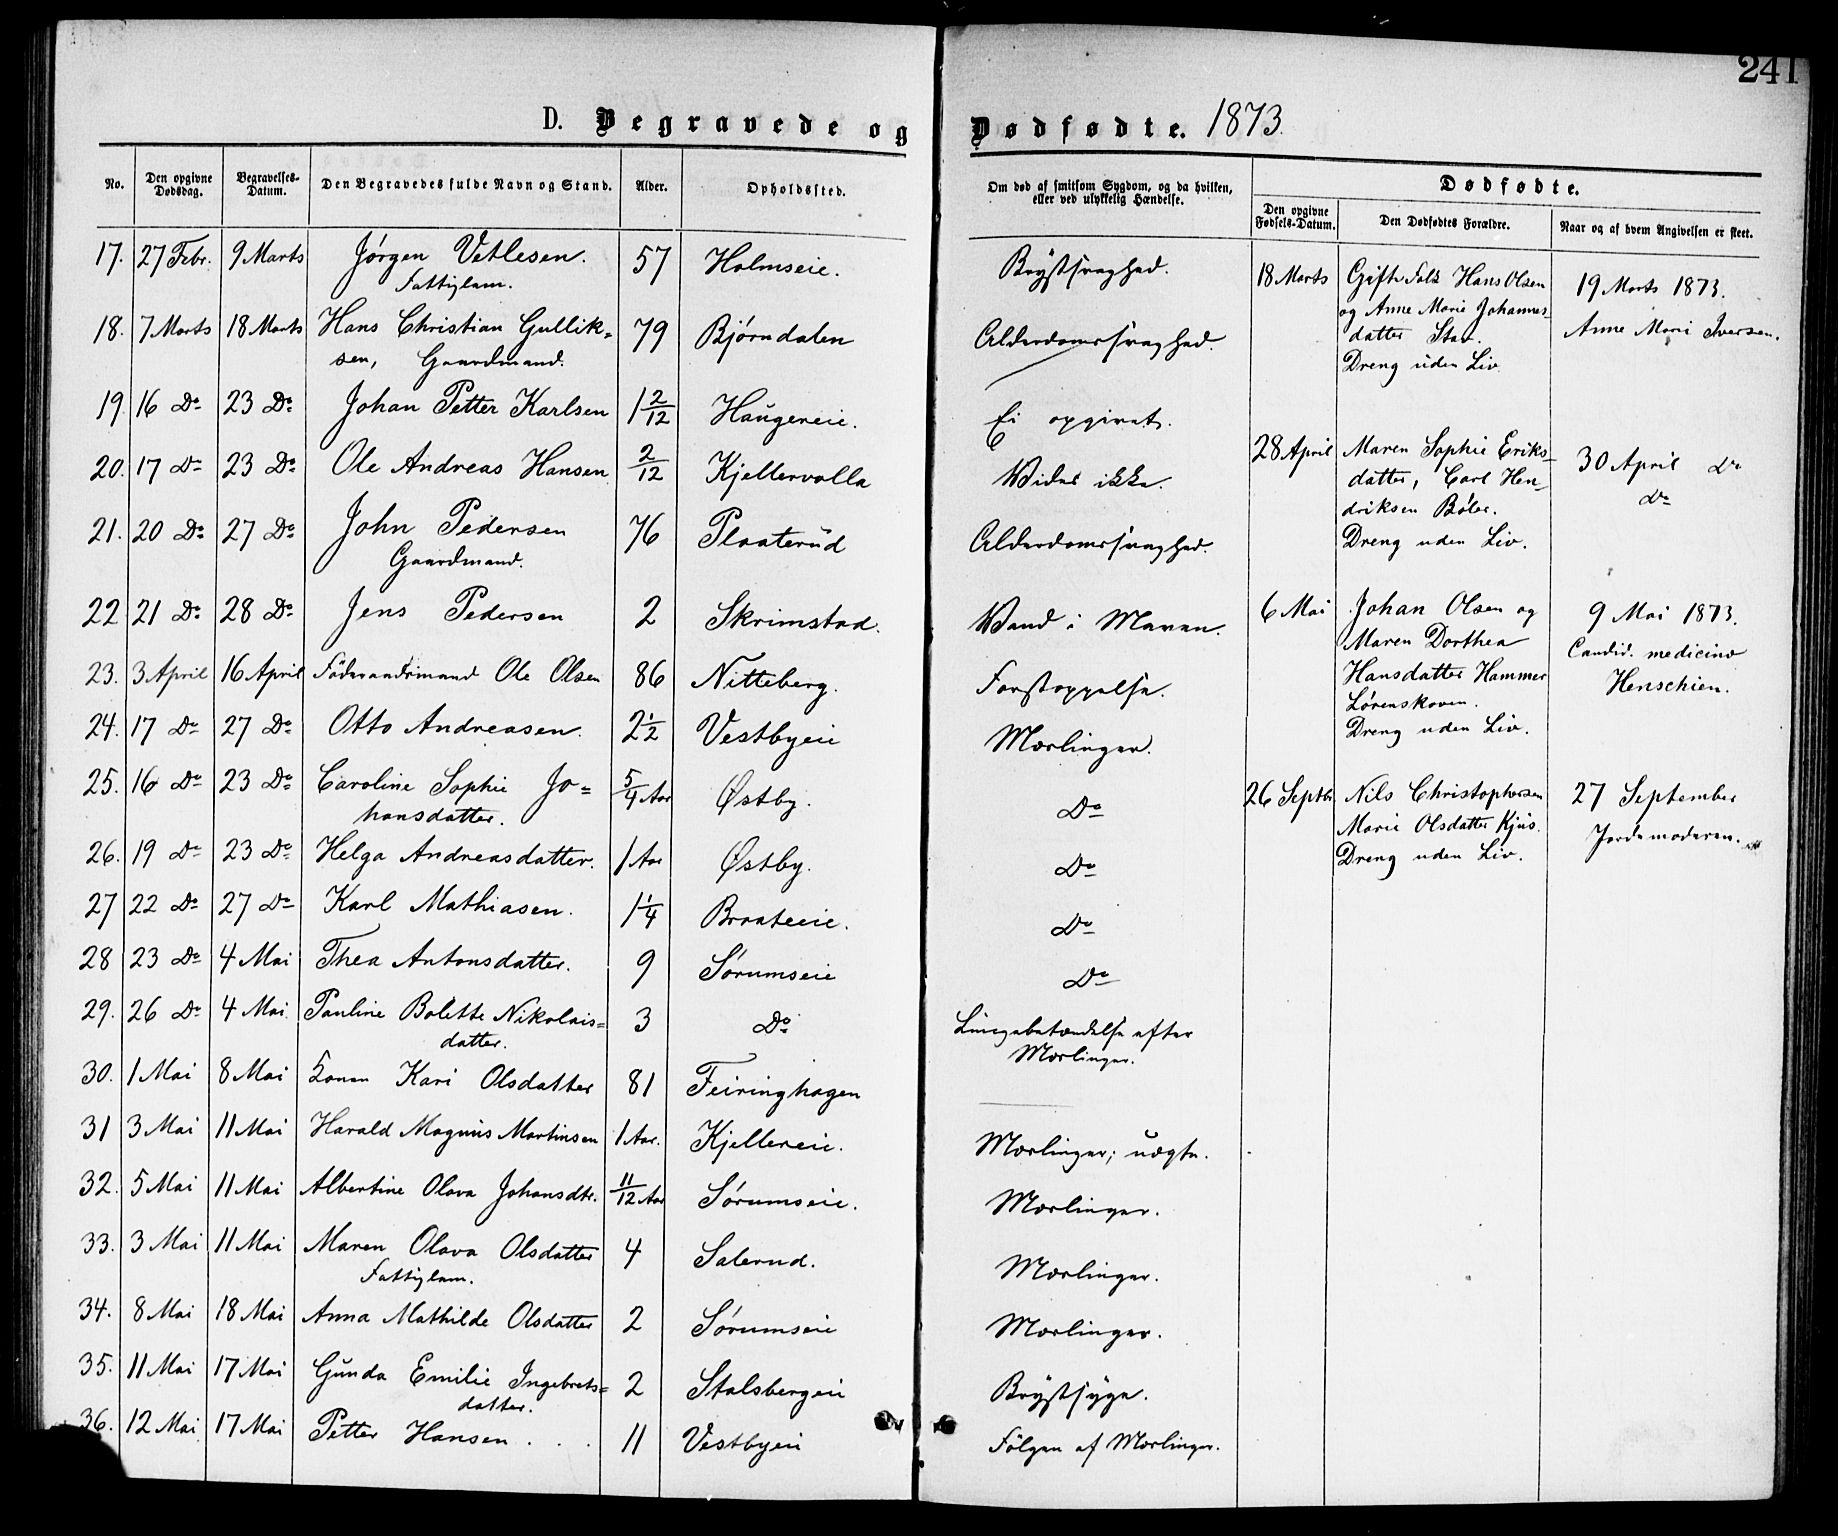 241
D. Begravede og Dødfødte. 1873.
No.
Den opgivne Dødsdag.
Begravelses-Datum.
Den Begravedes fulde Navn og Stand.
Alder.
Opholdssted.
Om død af smitsom Sygdom, og da hvilken,
eller ved ulykkelig Hændelse.
Dødfødte.
Den opgivne Fødsels-Datum.
Den Dødfødtes Forældre.
Naar og af hvem Angivelsen er skeet.
17. 27 Febr. 9 Marts Jørgen Vetlesen. 57 Holmseie. Brystsvaghed.
Fattiglem.
18. 7 Marts 18 Marts Hans Christian Gullik= 79 Bjørndalen Alderdomssvaghed.
sen, Gaardmand.
19. 16 Do 23 Do Johan Petter Karlsen 1 2/12 Haugereie. Ei opgivet.
20. 17 Do 23 Do Ole Andreas Hansen 2/12 Kjellervolla Vides ikke.
21. 20 Do 27 Do John Pedersen 76 Plaaterud Alderdomssvaghed.
Gaardmand.
22 21 Do 28 Do Jens Pedersen 2 Skrimstad. Vand i Maven.
23. 3 April 16 April Føderaadsmand Ole Olsen 86 Nitteberg. Forstoppelse.
24. 17 Do 27 Do Otto Andreasen. 2½ Vestbyeie Mæslinger.
25. 16 Do 23 Do Caroline Sophie Jo= 5/4 Aar Østby. Do
hansdatter.
26. 19 Do 23 Do Helga Andreasdatter. 1 Aar Østby. Do
27 22 Do 27 Do Karl Mathiasen. 1¼ Braateeie. Do
28 23 Do 4 Mai Thea Antonsdatter. 9 Sørumseie Do
29. 26 Do 4 Mai Pauline Bolette Nikolais= 3 Do Lungebetændelse efter
datter. Mæslinger.
30. 1 Mai 8 Mai Konen Kari Olsdatter 81 Feiringhagen
31 3 Mai 11 Mai Harald Magnus Martinsen 1 Aar. Kjellereie. Mæslinger; uægte.
32. 5 Mai 11 Mai Albertine Olava Johansdtr. 11/12 Aar Sørumseie. Mæslinger.
33. 3 Mai 11 Mai Maren Olava Olsdatter 4 Salerud. Mæslinger.
Fattiglem.
34. 8 Mai 18 Mai Anna Mathilde Olsdatter 2 Sørumseie Mæslinger.
35. 11 Mai 17 Mai Gunda Emilie Ingebrets= 2 Stalsbergeie Brystsyge.
datter.
36. 12 Mai 17 Mai Petter Hansen . . . 11 Vestbyeie Følgen af Mæslinger.
18 Marts Gifte Folk Hans Olsen 19 Marts 1873.
og Anne Marie Johannes- Anne Marie Iversen.
datter Stav.
Dreng uden Liv.
28 April Maren Sophie Eriks- 30 April Do
datter, Carl Hen- Do
driksen Bøler.
Dreng uden Liv.
6 Mai Johan Olsen og 9 Mai 1873.
Maren Dorthea Candid. medicine
Hansdatter Hammer Henschien.
Lørenskoven.
Dreng uden Liv.
26 Septbr Nils Christophersen 27 September
Marie Olsdatter Kjus. Jordemoderen.
Dreng uden Liv.